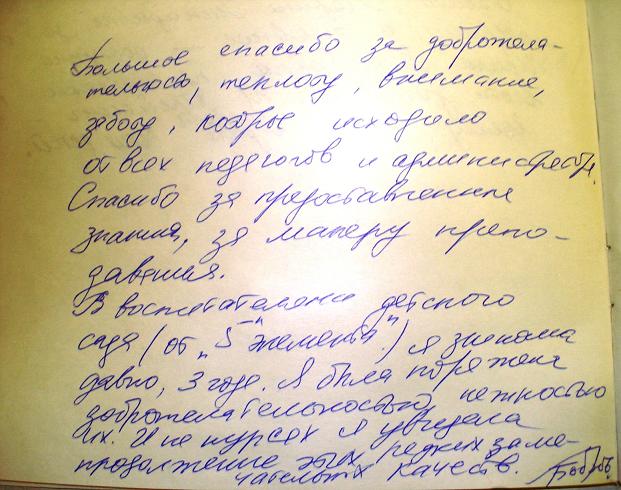 Большое спасибо за доброжела-
тельность, теплоту, внимание,
заботу, которые исходило
от всех педагогов и администратор.
Спасибо за предоставленные
знания, за манеру препо-
давания.
В воспитателями детского
сада (от "5 элемента") я знакома
давно, 3 года. Я была поражена
доброжелательностью, нежностью
их. И на курсах я увидела
продолжение этих редких заме-
чательных качеств.